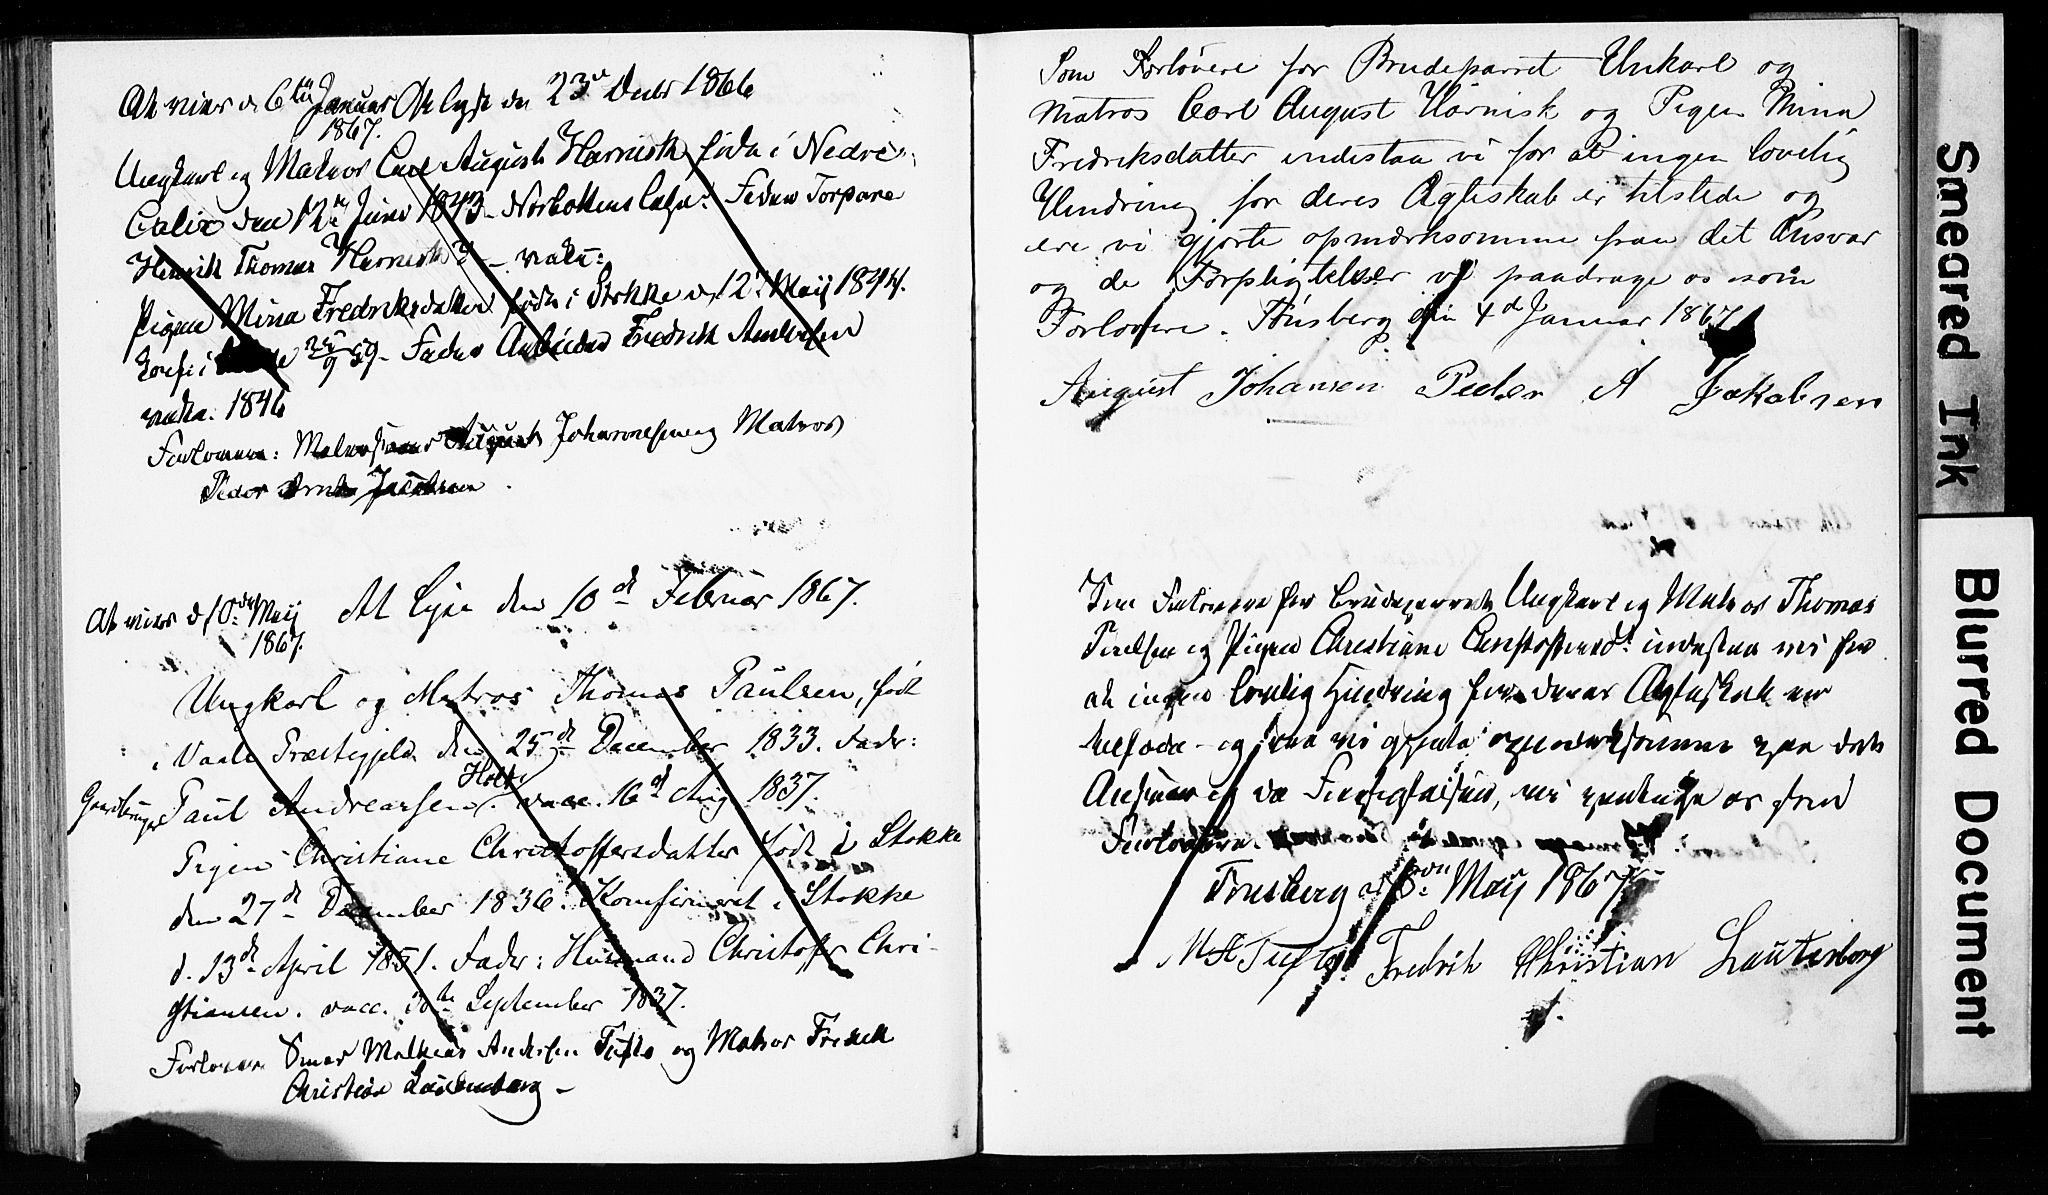 At vies d. 6te Januar 1867. At lyse den 23de Decbr 1866
Ungkarl og Matros Carl August Harnesk føda i Nedre
Calix den 12te Juni 1843 Norbottens Fader Torpare
Henrik Thomas Harnesk
Pigen Mina Fredriksdatter født i Stokke d. 12te Maij 1844.
Conf. i 59 Fader Arbeider Fredrik Andersen
1846
Forlovere: August Johannesen og Matros
Peder Jacobsen.
At vies d. 10de Maij
1867.
At Lyse den 10de Februar 1867.
Ungkarl og Matros Thomas Paulsen, født
i Vaale Præstegjeld den 25de December 1833. Fader:
Gaardbruger Paul Andreassen Holt, vacc. 16de Aug 1837.
Pigen Christiane Christoffersdatter født i Stokke
den 27de December 1836. Konfirmeret i Stokke
d. 13de April 1851. Fader: Husmand Christoffer Chri-
stiansen. vacc. September 1837.
Forlovere Mathias Andersen Tufte og Matros Fredrik
Christian Lauterborg
Som Forlovere for Brudeparret Unkarl og
Matros Carl August Harnisk og Pigen Mina
Fredriksdatter indestaa vi for at ingen lovelig
Hindring for deres Ægteskab er tilstede og
ere vi gjorte opmærksomme paa det Ansvar
og de Forpligtelser vi paadrage os som
Forlovere. Tønsberg den 4d Januar 1867
August Johansen Peder A Jakobsen
Som Forlovere for Brudeparret Ungkarl og Matros Thomas
Poulsen og Pigen Christiane Christoffersd: indestaa vi for
at ingen lovlig Hindring for deres Ægteskab er
tilstede - og ere vi gjorte opmærksomme paa det
Ansvar og de Forpligtelser, vi paadrage os som
Forlovere.
Tønsberg d. May 1867
M A Tufte Fredrik Christian Lauterborg
Smeared Ink
Blurred Document